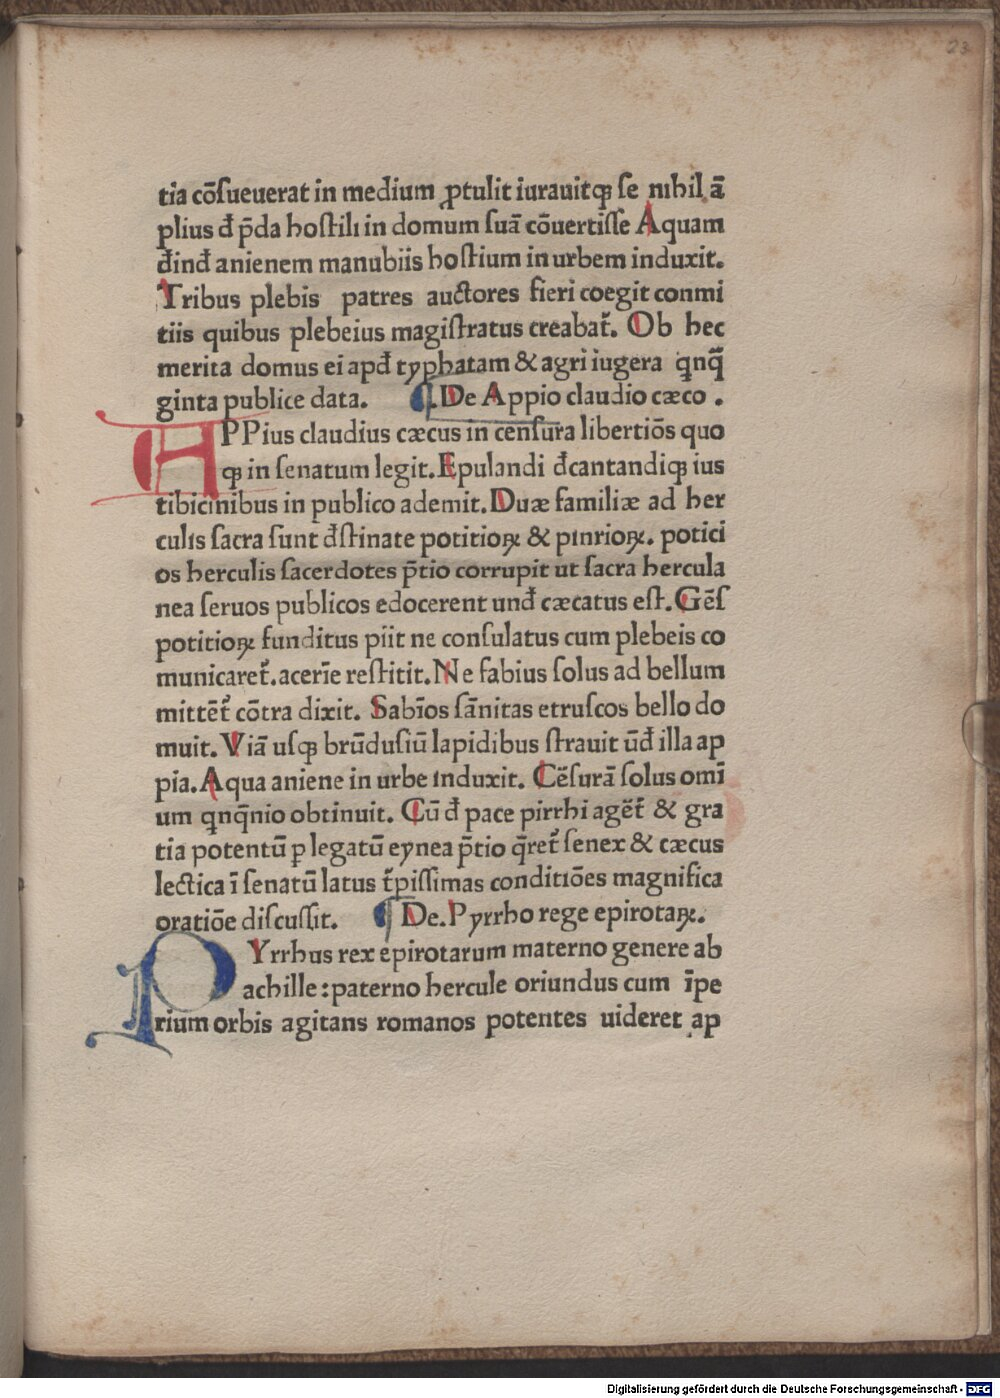 23
tia cõſueuerat in medium ꝓtulit iurauitqꝫ ſe nihil ã
plius đ p̃da hoſtili in domum ſuã cõuertiſſe Aquam
đinđ anienem manubiis hoſtium in urbem induxit.
Tribus plebis patres auctores fieri coegit conmi
tiis quibus plebeius magiſtratus creabat᷑. Ob hec
merita domus ei apđ typhatam & agri iugera q̃nq̃
ginta publice data. ¶ De Appio claudio cæco .
APPius claudius cæcus in cenſura libertiõs quo
qꝫ in ſenatum legit. Epulandi đcantandiqꝫ ius
tibicinibus in publico ademit. Duæ familiæ ad her
culis ſacra ſunt đſtinate potitioꝝ & pinrioꝝ. potici
os herculis ſacerdotes p̃tio corrupit ut ſacra hercula
nea ſeruos publicos edocerent unđ cæcatus eſt. Gẽſ
potitioꝝ funditus piit ne conſulatus cum plebeis co
municaret᷑. acerĩe reſtitit. Ne fabius ſolus ad bellum
mittẽt᷑ cõtra dixit. Sabĩos ſãnitas etruſcos bello do
muit. Viã uſqꝫ brũduſiũ lapidibus ſtrauit ũđ illa ap
pia. Aqua aniene in urbe induxit. Cẽſurã ſolus omĩ
um q̃nq̃nio obtinuit. Cũ đ pace pirrhi agẽt᷑ & gra
tia potentũ ꝑ legatũ eynea p̃tio q̃ret᷑ ſenex & cæcus
lectica ĩ ſenatũ latus t᷑piſſimas conditiões magnifica
oratiõe diſcuſſit. ¶ De. Pyrrho rege epirotaꝝ.
PYrrhus rex epirotarum materno genere ab
achille : paterno hercule oriundus cum ĩpe
rium orbis agitans romanos potentes uideret ap
Digitalisierung gefördert durch die Deutsche Forschungsgemeinschaft - DFG